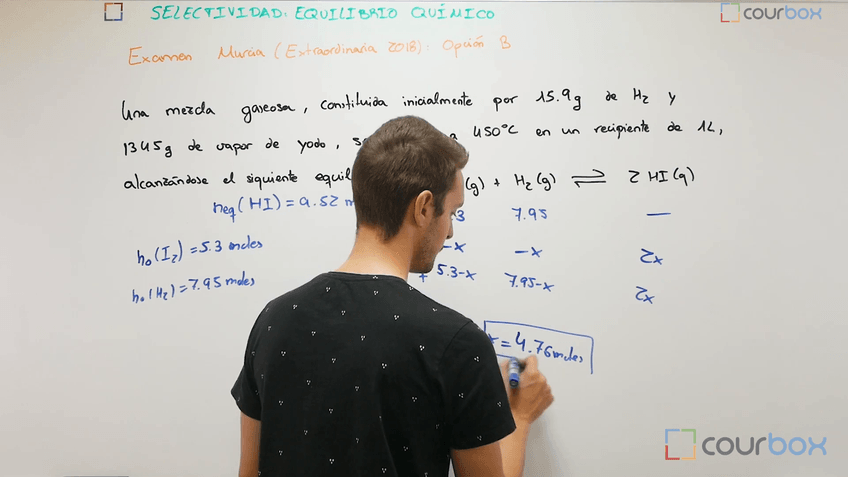 SELECTIVIDAD: EQUILIBRIO QUÍMICO
courbox
Examen Murcia (Extraordinaria 2018): Opción B
Una mezcla gaseosa, constituida inicialmente por 15.9g de H₂ y
1345g de vapor de yodo, a 450°C en un recipiente de 1L,
alcanzándose el siguiente (g) + H₂(g) ⇌ 2 HI(g)
neq(HI) = 9.52
7.95 —
n₀(I₂) = 5.3 moles
-x -x 2x
n₀(H₂) = 7.95 moles
5.3-x 7.95-x 2x
x = 4.76 moles
courbox